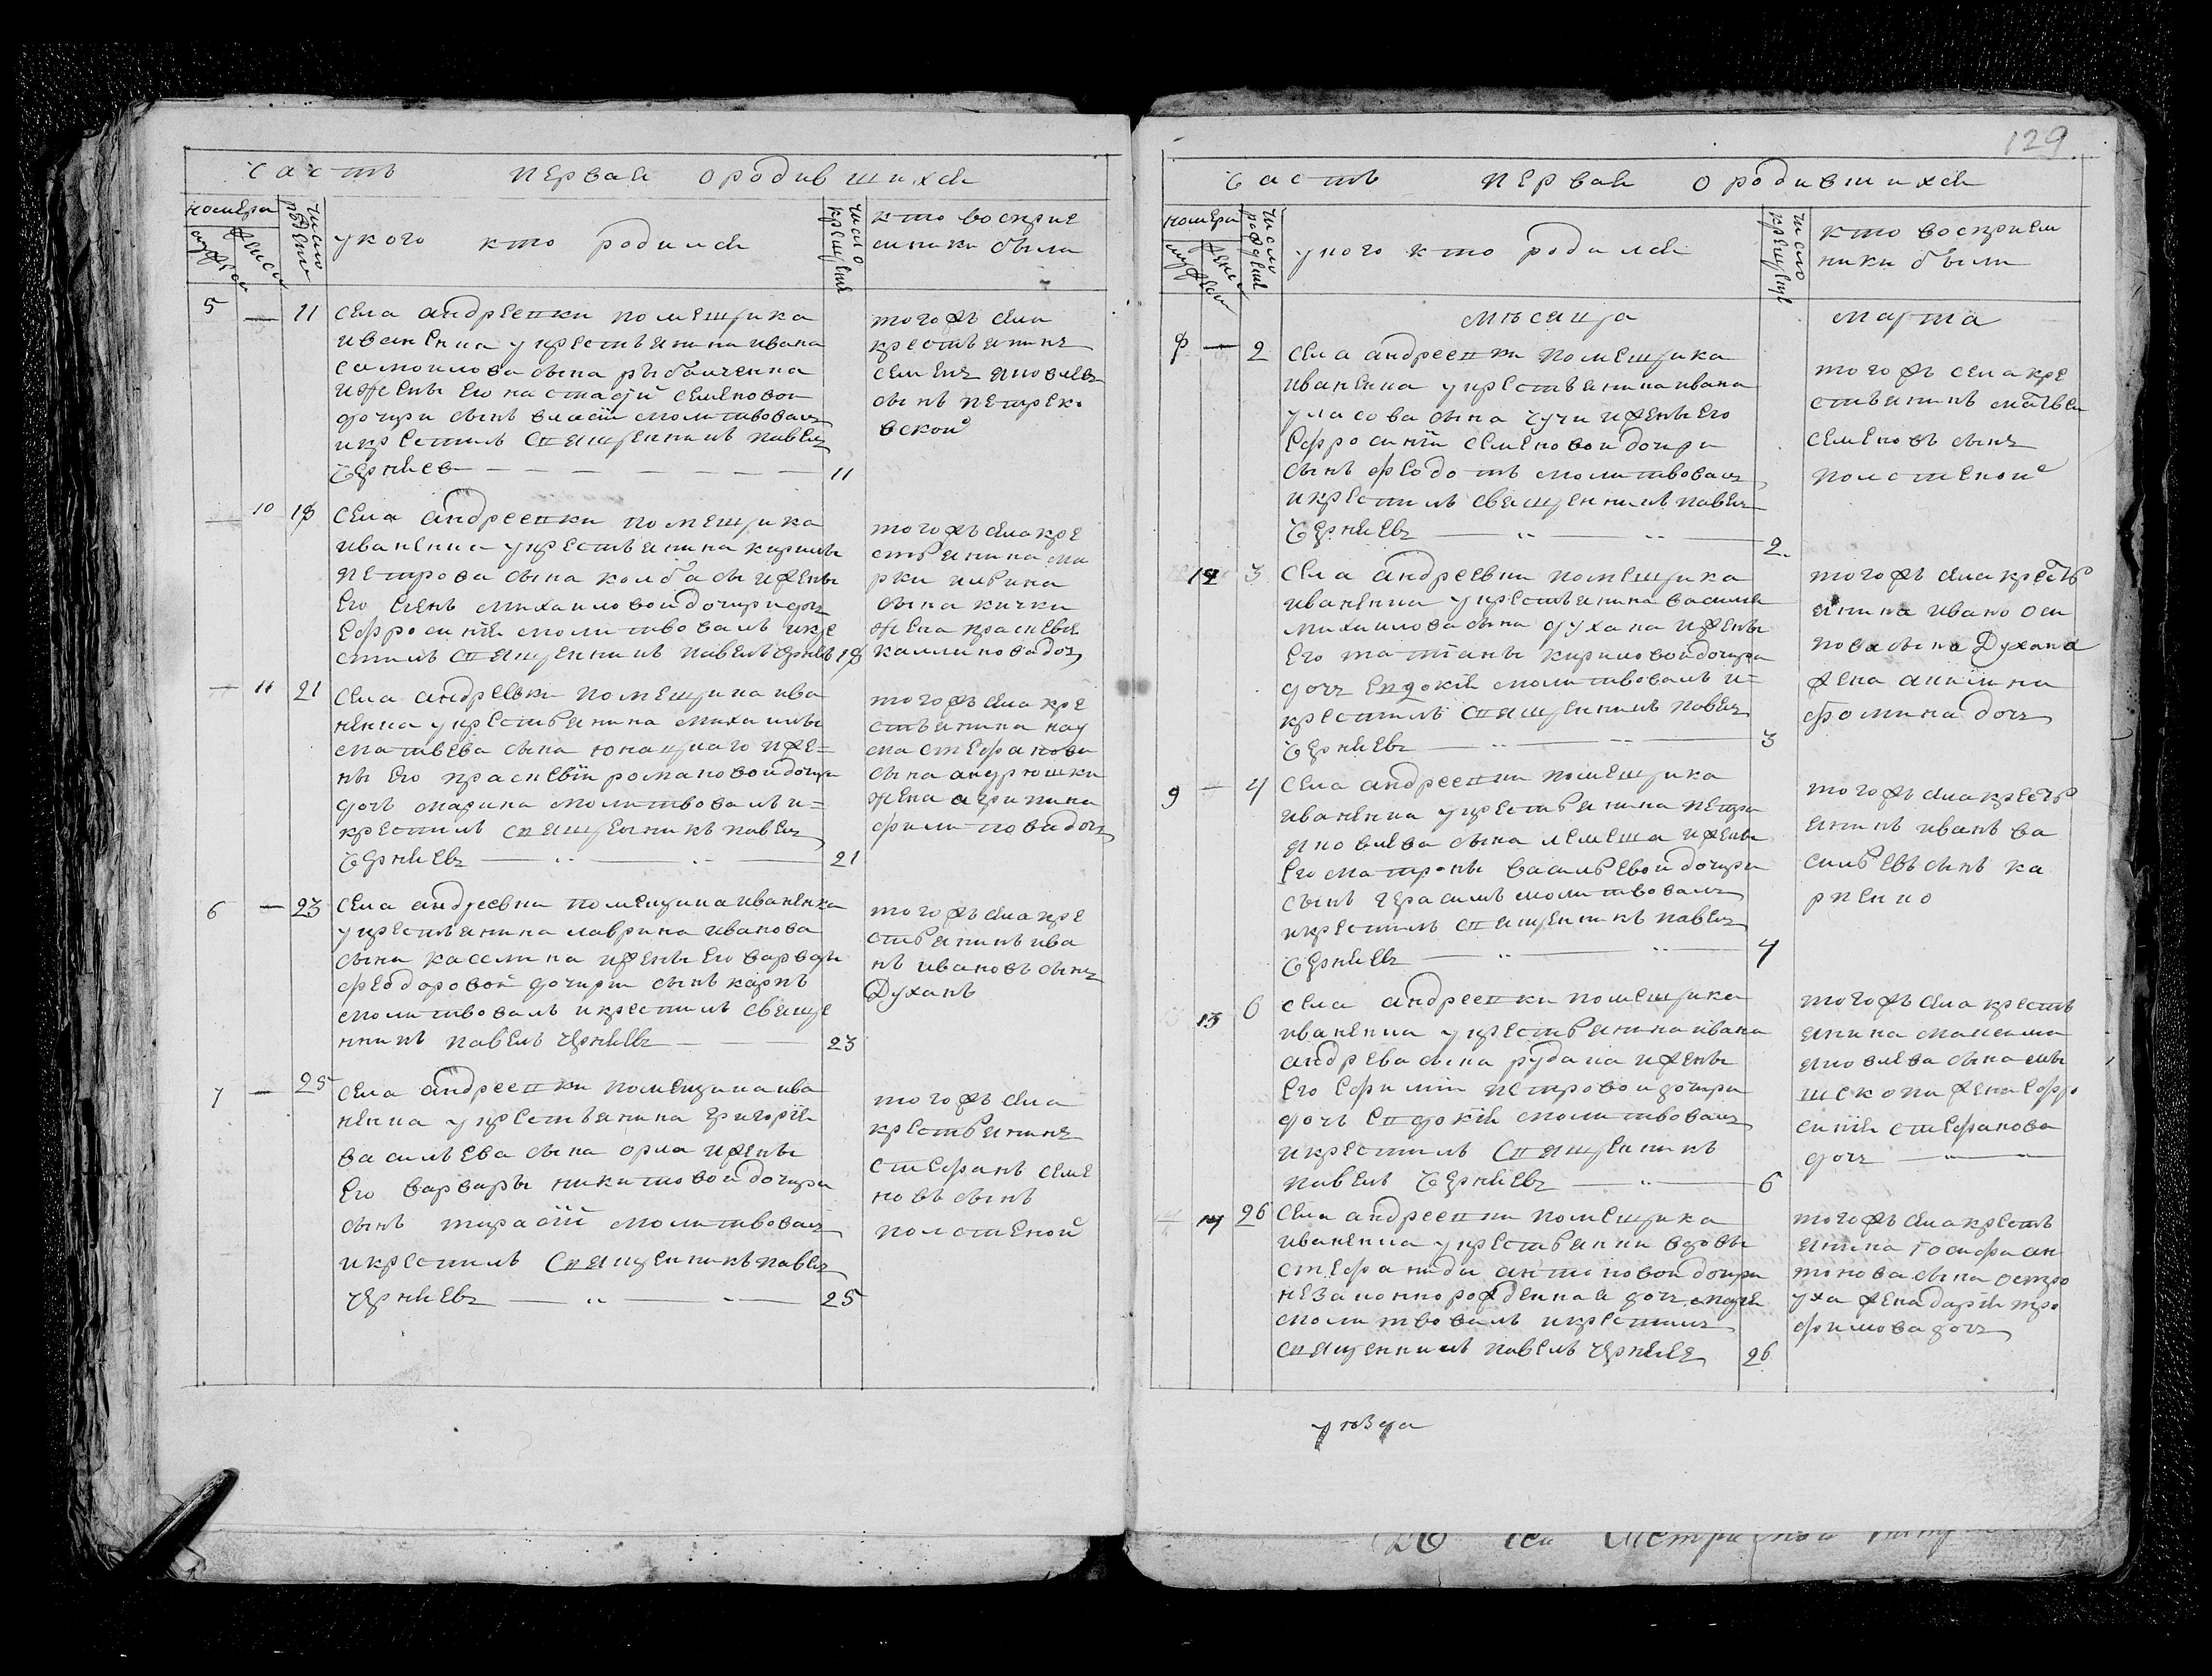 часть первая ородившихся
номера
мужеск
женск
число рожден
укого кто родился
число крещения
кто восприе
мники были
5 — 11 села андреевки помещика
иваненка укрестьянина ивана
самоилова сына рыбалченка
ижены его настасїи семеновой
дочери сынъ власїй молитвовалъ
икрестилъ священникъ павелъ
Чернѣев — 11
тогожъ села
крестьянинъ
семенъ яковлевъ
сынъ петрек
вской
— 10 18 села андреевки помещика
иваненка укрестьянина кирилы
петрова сына колбасы ижены
его елены михаиловой дочери дочь
ефросинїя молитвовалъ икре
стилъ священникъ павелъ Чернѣевъ 18
тогожъ села кре
стьянина ма
рки ильина
сына кички
жена праскевья
калинова дочь
— 11 21 села андреевки помещика ива
ненка укрестьянина михаилы
матвеева сына юнацкаго иже=
ны его праскевїи романовой дочери
дочь марина молитвовалъ и=
крестилъ священникъ павелъ
Чернѣевъ — 21
тогожъ села кре
стьянина нау
ма стефанова
сына андрюшки
жена агрипина
филипова дочь
6 — 23 села андреевки помещика иваненка
укрестьянина лаврина иванова
сына касслика ижены его варвары
феодоровой дочери сынъ карпъ
молитвовалъ икрестилъ священ
нникъ павелъ Чернѣевъ — 23
тогожъ села кре
стьянинъ ива
нъ ивановъ сынъ
Духанъ
7 — 25 села андреевки помещика ива
ненка укрестьянина григорїя
васильева сына орла ижены
его варвары никитовой дочери
сынъ тарасїй молитвовалъ
икрестилъ священникъ павелъ
Чернѣевъ — 25
тогожъ села
крестьянинъ
стефанъ семе
новъ сынъ
полстеной
129
часть первая ородившихся
номера
мужеск
женск
число рождения
укого кто родился
число крещение
кто восприем
ники были
мѣсяца марта
8 — 2 села андреевки помещика
иваненка укрестьянина ивана
уласова сына чучи ижены его
ефросинїи семеновой дочери
сынъ феодотъ молитвовалъ
икрестилъ священникъ павелъ
Чернѣевъ — 2.
тогожъ села кре
стьянинъ матвей
семеновъ сынъ
полстеной
12 3 села андреевки помещика
иваненка укрестьянина василя
михаилова сына духана ижены
его татїаны кириловой дочери
дочь евдокїя молитвовалъ и=
крестилъ священникъ павелъ
Чернѣевъ — 3
тогожъ села кресть
янина ивана оси
пова сына Духана
жена акилина
фомина дочь
9 — 4 села андреевки помещика
иваненка укрестьянина петра
яковлева сына лемеша ижены
его матроны васильевой дочери
сынъ герасимъ молитвовалъ
икрестилъ священникъ павелъ
Чернѣевъ — 4
тогожъ села кресть
янинъ иванъ ва
сильевъ сынъ ка
рпенко
13 6 села андреевки помещика
иваненка укрестьянина ивана
андреева сына рудака ижены
его ефимїи петровой дочери
дочь евдокїя молитвовалъ
икрестилъ священникъ
павелъ Чернѣевъ — 6
тогожъ села кресть
янина максима
яковлева сына мы
шекопи жена ефро
синїя стефанова
дочь
14 26 села андреевки помещика
иваненка укрестьянки вдовы
стефаниды антоновой дочери
незаконнорожденная дочь марiя
молитвовалъ икрестилъ
священникъ павелъ Чернѣевъ 26
тогожъ села кресть
янина їосифа ан
тонова сына остро
уха жена дарїя тро
фимова дочь
уѣзда